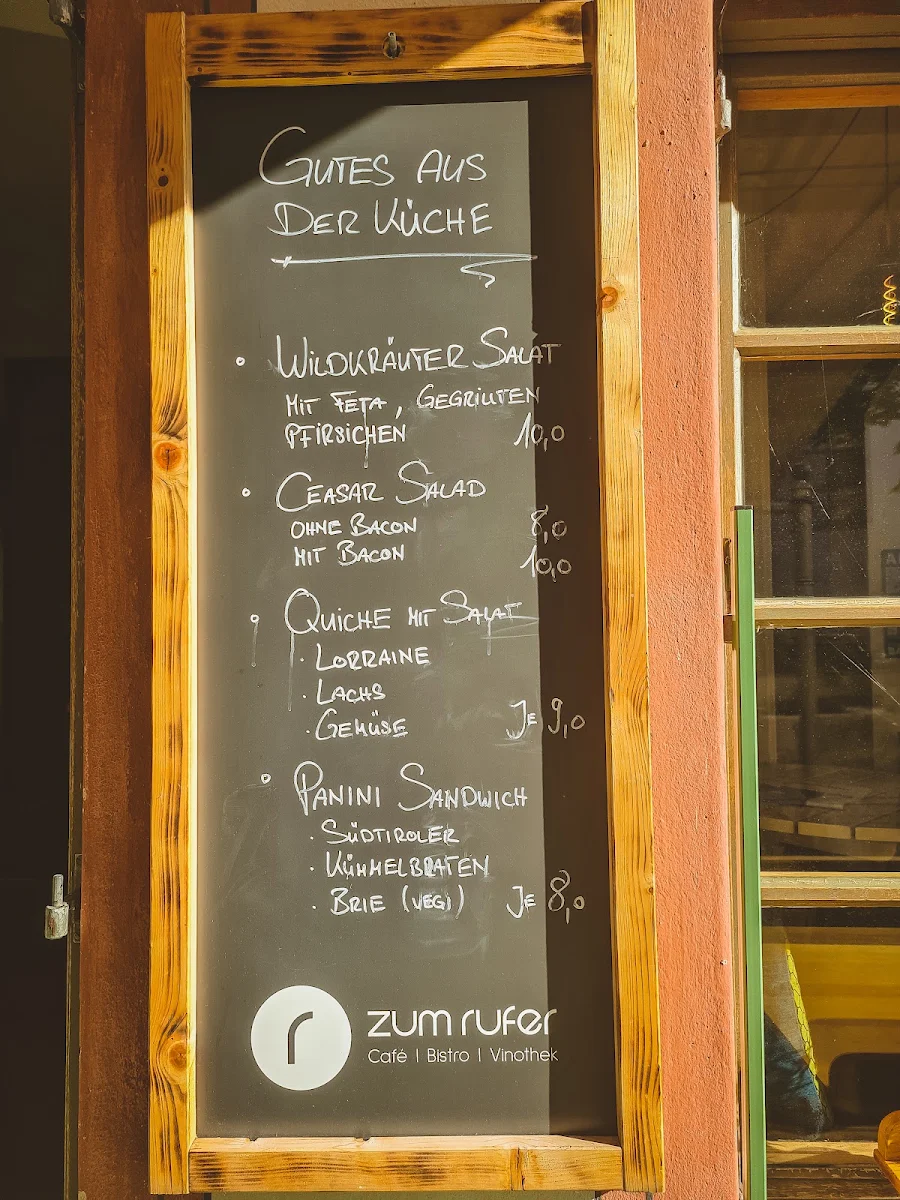 GUTES AUS
DER KÜCHE
WILDKRÄUTER SALAT
MIT FETA, GEGRILLTEN
PFIRSICHEN 10,0
CEASAR SALAD
OHNE BACON 8,0
MIT BACON 10,0
QUICHE MIT SALAT
· LORRAINE
· LACHS
· GEMÜSE JE 9,0
PANINI SANDWICH
· SÜDTIROLER
· KÜMMELBRATEN
· BRIE (VEGI) JE 8,0
r zum rufer
Café | Bistro | Vinothek